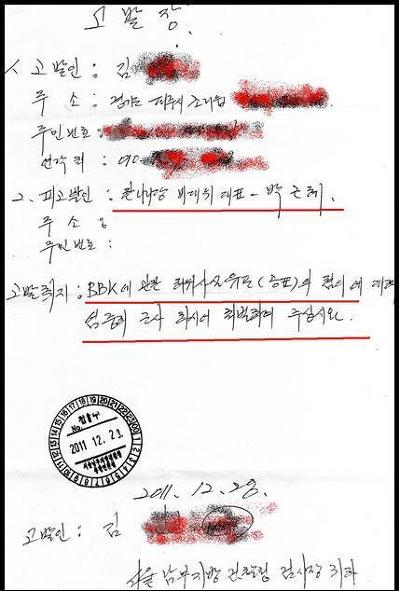 고발장.
1. 고발인 : 김
주소 : 경기도 파주시 조리읍
주민번호 :
연락처 : 010
2. 피고발인 : 한나라당 비대위 대표 - 박근혜.
주소 :
주민번호 :
고발취지 : BBK에 관한 허위사실유포(공표)의 혐의에 대해
엄중히 조사 하시어 처벌하여 주십시오.
2011. 12. 2
2011. 12. 28.
고발인 : 김
서울 남부지방 검찰청 검사장 귀하